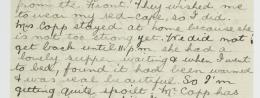 from the Front. They wished me
to wear my red-cape, so I did.
Mrs Capp stayed at home because she
is not too strong yet. We did not
get back until 11 p.m she had a
lovely supper waiting & when I went
to bed, found it had been warmed
& was near beautiful. So I'm
getting quite spoilt! Mr Capp has